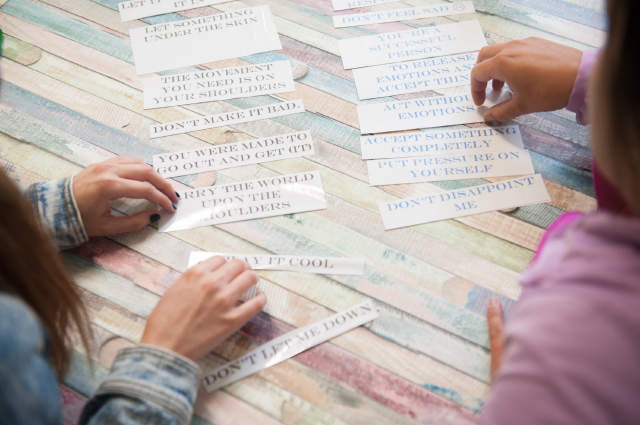 LET SOMETHING
UNDER THE SKIN
THE MOVEMENT
YOU NEED IS ON
YOUR SHOULDERS
DON'T MAKE IT BAD.
YOU WERE MADE TO
GO OUT AND GET (IT)
RRY THE WORLD
UPON THE
SHOULDERS
AY IT COOL
DON'T LET ME DOWN
DON'T FEEL SAD
YOU'RE A
SUCCESSFUL
PERSON
TO RELEASE
EMOTIONS, AN
ACCEPT THIN
ACT WITHO
EMOTION
ACCEPT SOMETHING
COMPLETELY
PUT PRESSURE ON
YOURSELF
DON'T DISAPPOINT
ME